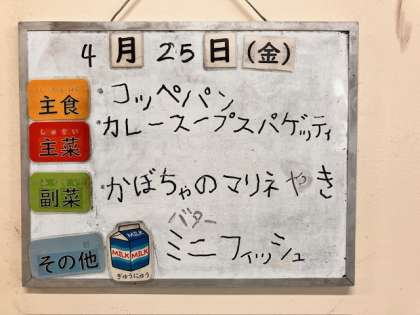 4月25日(金)
主食 コッペパン
しゅさい
主菜 カレースープスパゲッティ
副菜 かばちゃのマリネやき
バター
その他 ミニフィッシュ
MILK MILK
ぎゅうにゅう